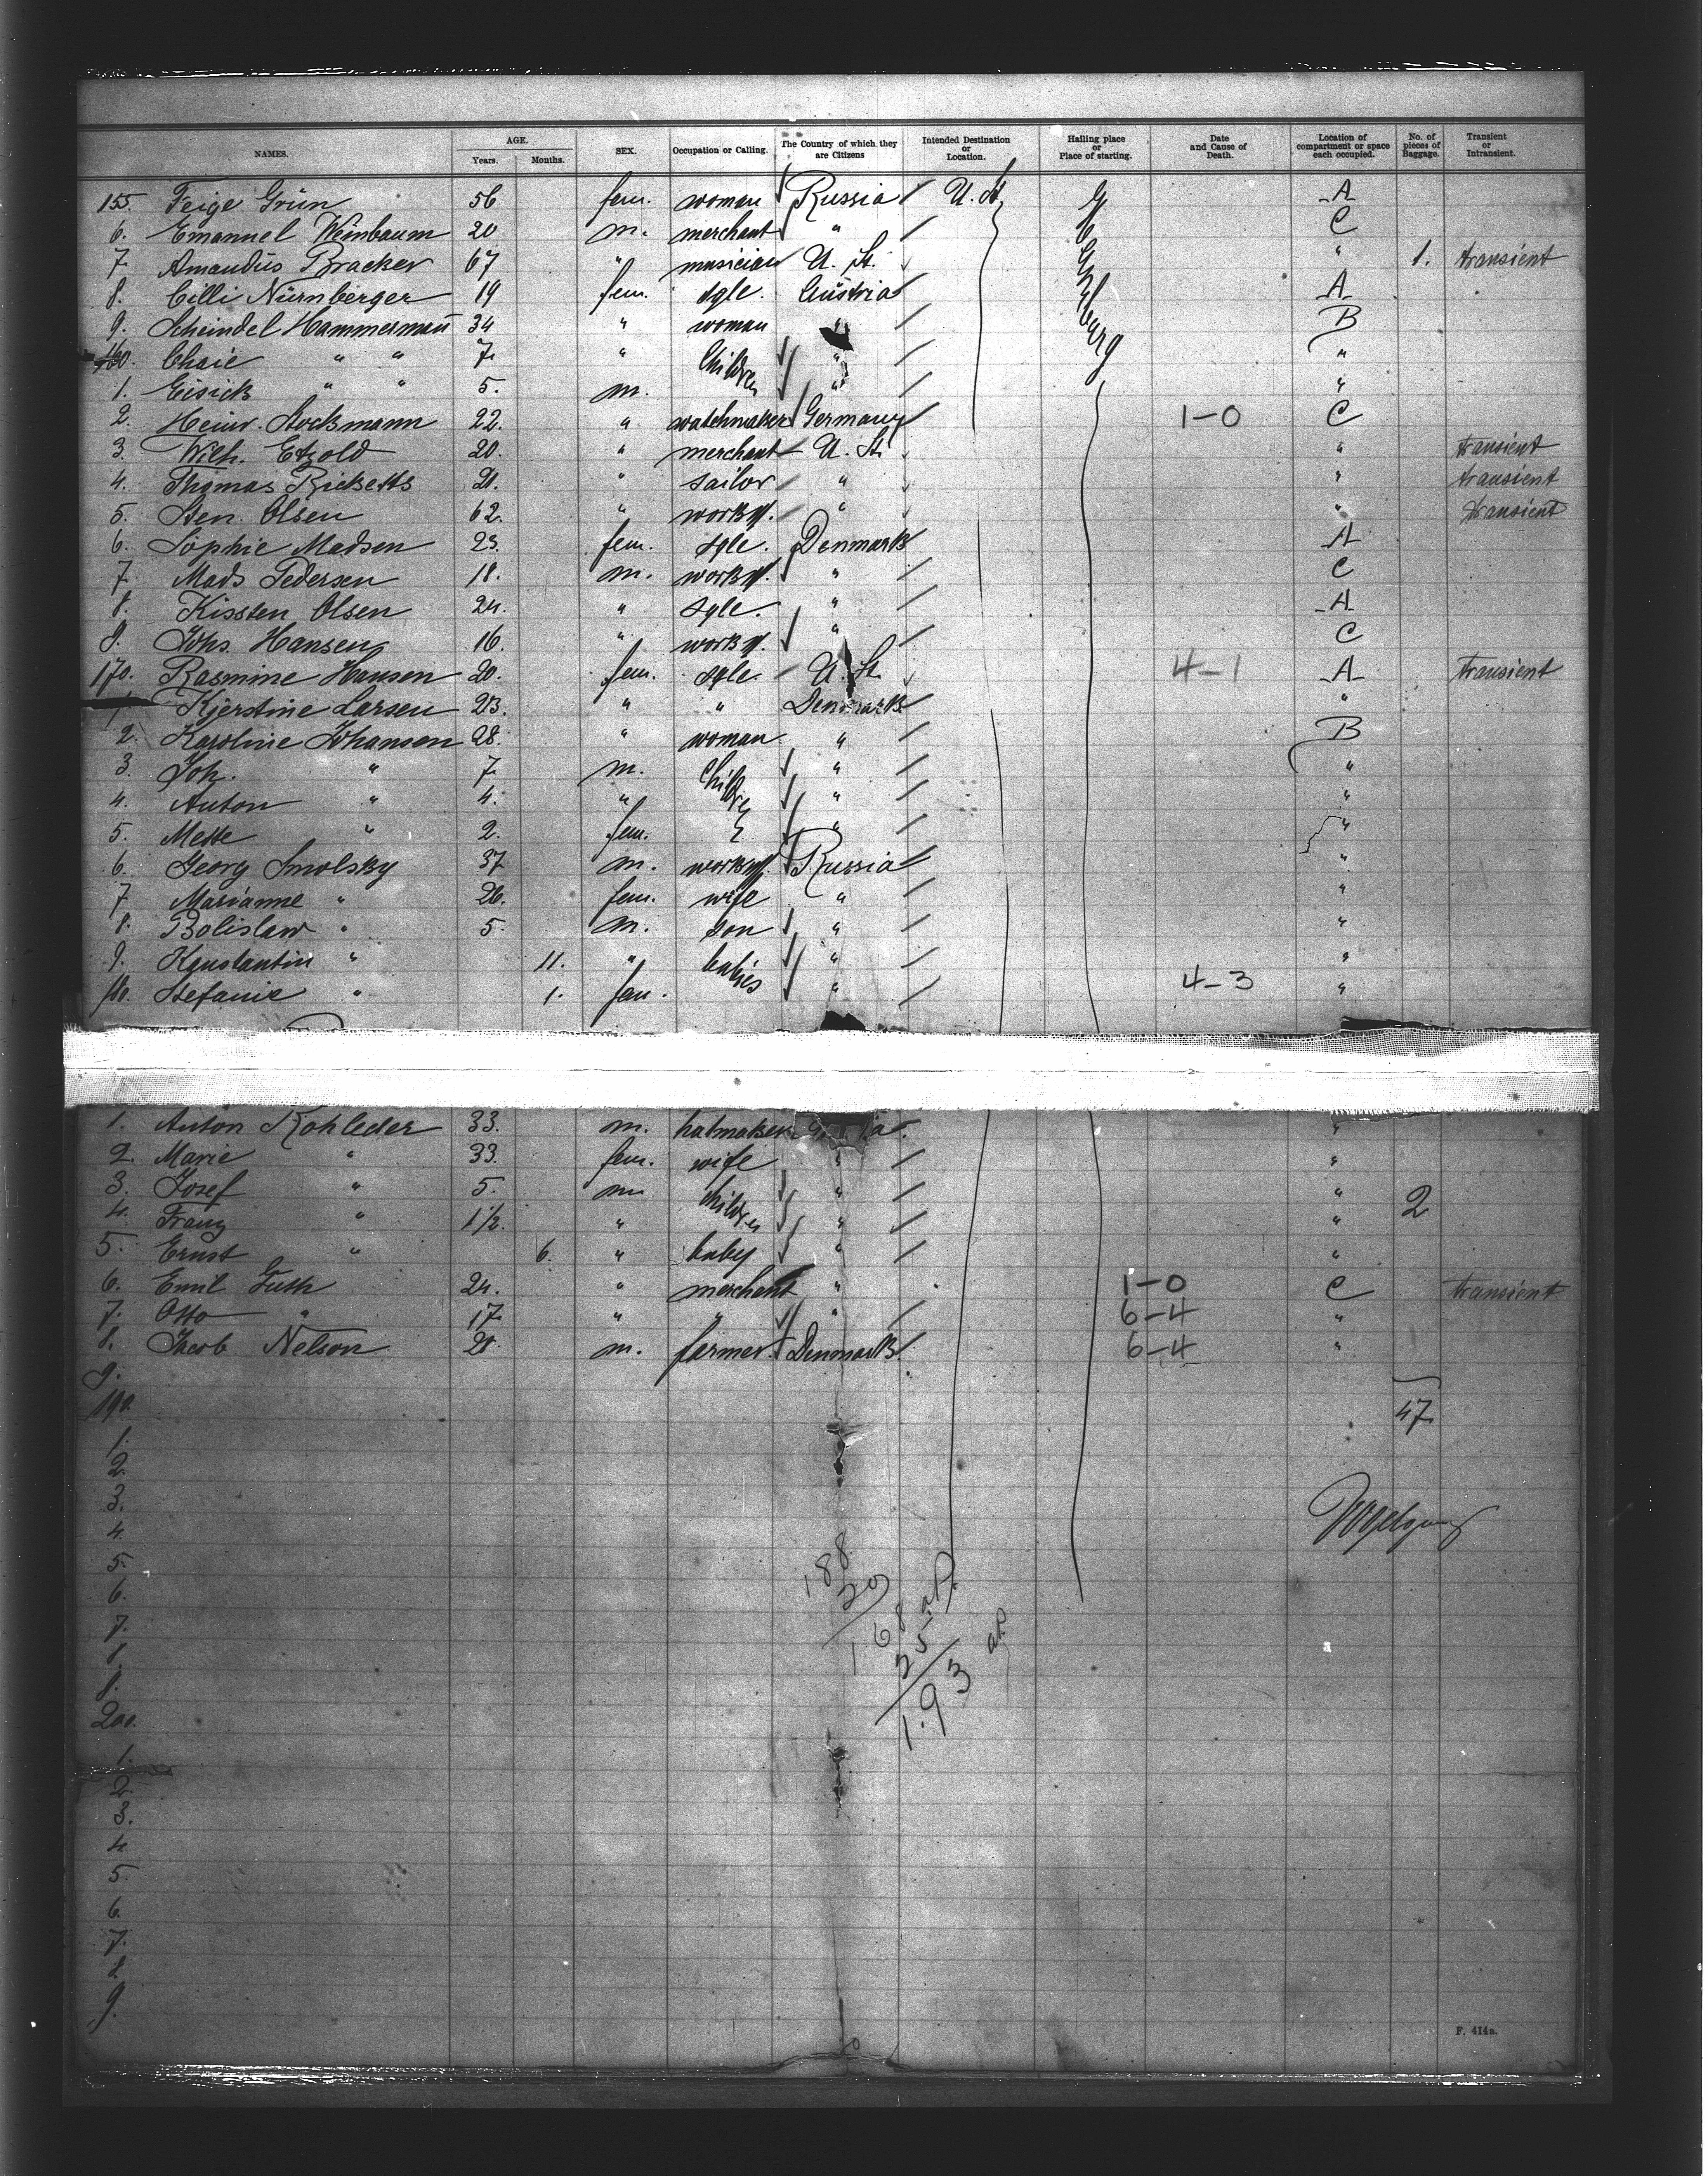 NAMES. AGE. Years. Months. SEX. Occupation or Calling. The Country of which they are Citizens Intended Destination or Location. Hailing place or Place of starting. Date and Cause of Death. Location of compartment or space each occupied. No. of pieces of Baggage. Transient or Intransient.
155. Feige Grün 56 fem. woman Russia U. St. A
6. Emanuel Weinbaum 20 m. merchant " C
7. Amandus Bracker 67 " musician U. St. " 1. transient
8. Cilli Nürnberger 19 fem. sgle. Austria A
9. Scheindel Hammermañ 34 " woman " B
160. Chaie " " 7. " Children " "
1. Eisick " " 5. m. " "
2. Heinr. Stockmann 22. " watchmaker Germany 1-0 C
3. Wilh. Etzold 20. " merchant U. St. " transient
4. Thomas Ricketts 21. " sailor " " transient
5. Sten Olsen 62. " " " transient
6. Sophie Madsen 23. fem. sgle. Denmark A
7. Mads Pedersen 18. m. " C
8. Kissten Olsen 24. " sgle. " A
9. Johs. Hansen 16. " " C
170. Rasmine Hansen 20. fem. sgle. U. St. 4-1 A transient
1. Kjerstine Larsen 23. " " Denmark "
2. Karoline Johansen 28. " woman " B
3. Joh. " 7. m. Children " "
4. Anton " 4. " " "
5. Mette " 2. fem. " "
6. Georg Smolsky 37 m. Russia "
7. Marianne " 26. fem. wife " "
8. Bolislaw " 5. m. son " "
9. Konstantin " 11. " babies " "
180. Stefanie " 1. fem. " 4-3 "
1. Anton Kohleder 33. m. hatmaker "
2. Marie " 33. fem. wife " "
3. Josef " 5. m. children " " 2
4. Franz " 1 1/2. " " "
5. Ernst " 6. " baby " "
6. Emil Guth 24. " merchant " 1-0 C transient
7. Otto " 17. " " " 6-4 "
8. Jacob Nelson 21. m. farmer. Denmark. 6-4 "
9.
190. 47.
1.
2.
3.
4.
5.
6.
7.
8.
9.
200.
1.
2.
3.
4.
5.
6.
7.
8.
9.
188
20
168
25
193
F. 414a.